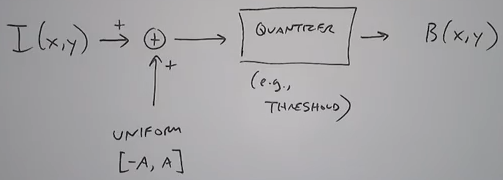 I(x,y) + + QUANTIZER B(x,y)
+
(e.g.,
THRESHOLD)
UNIFORM
[-A, A]